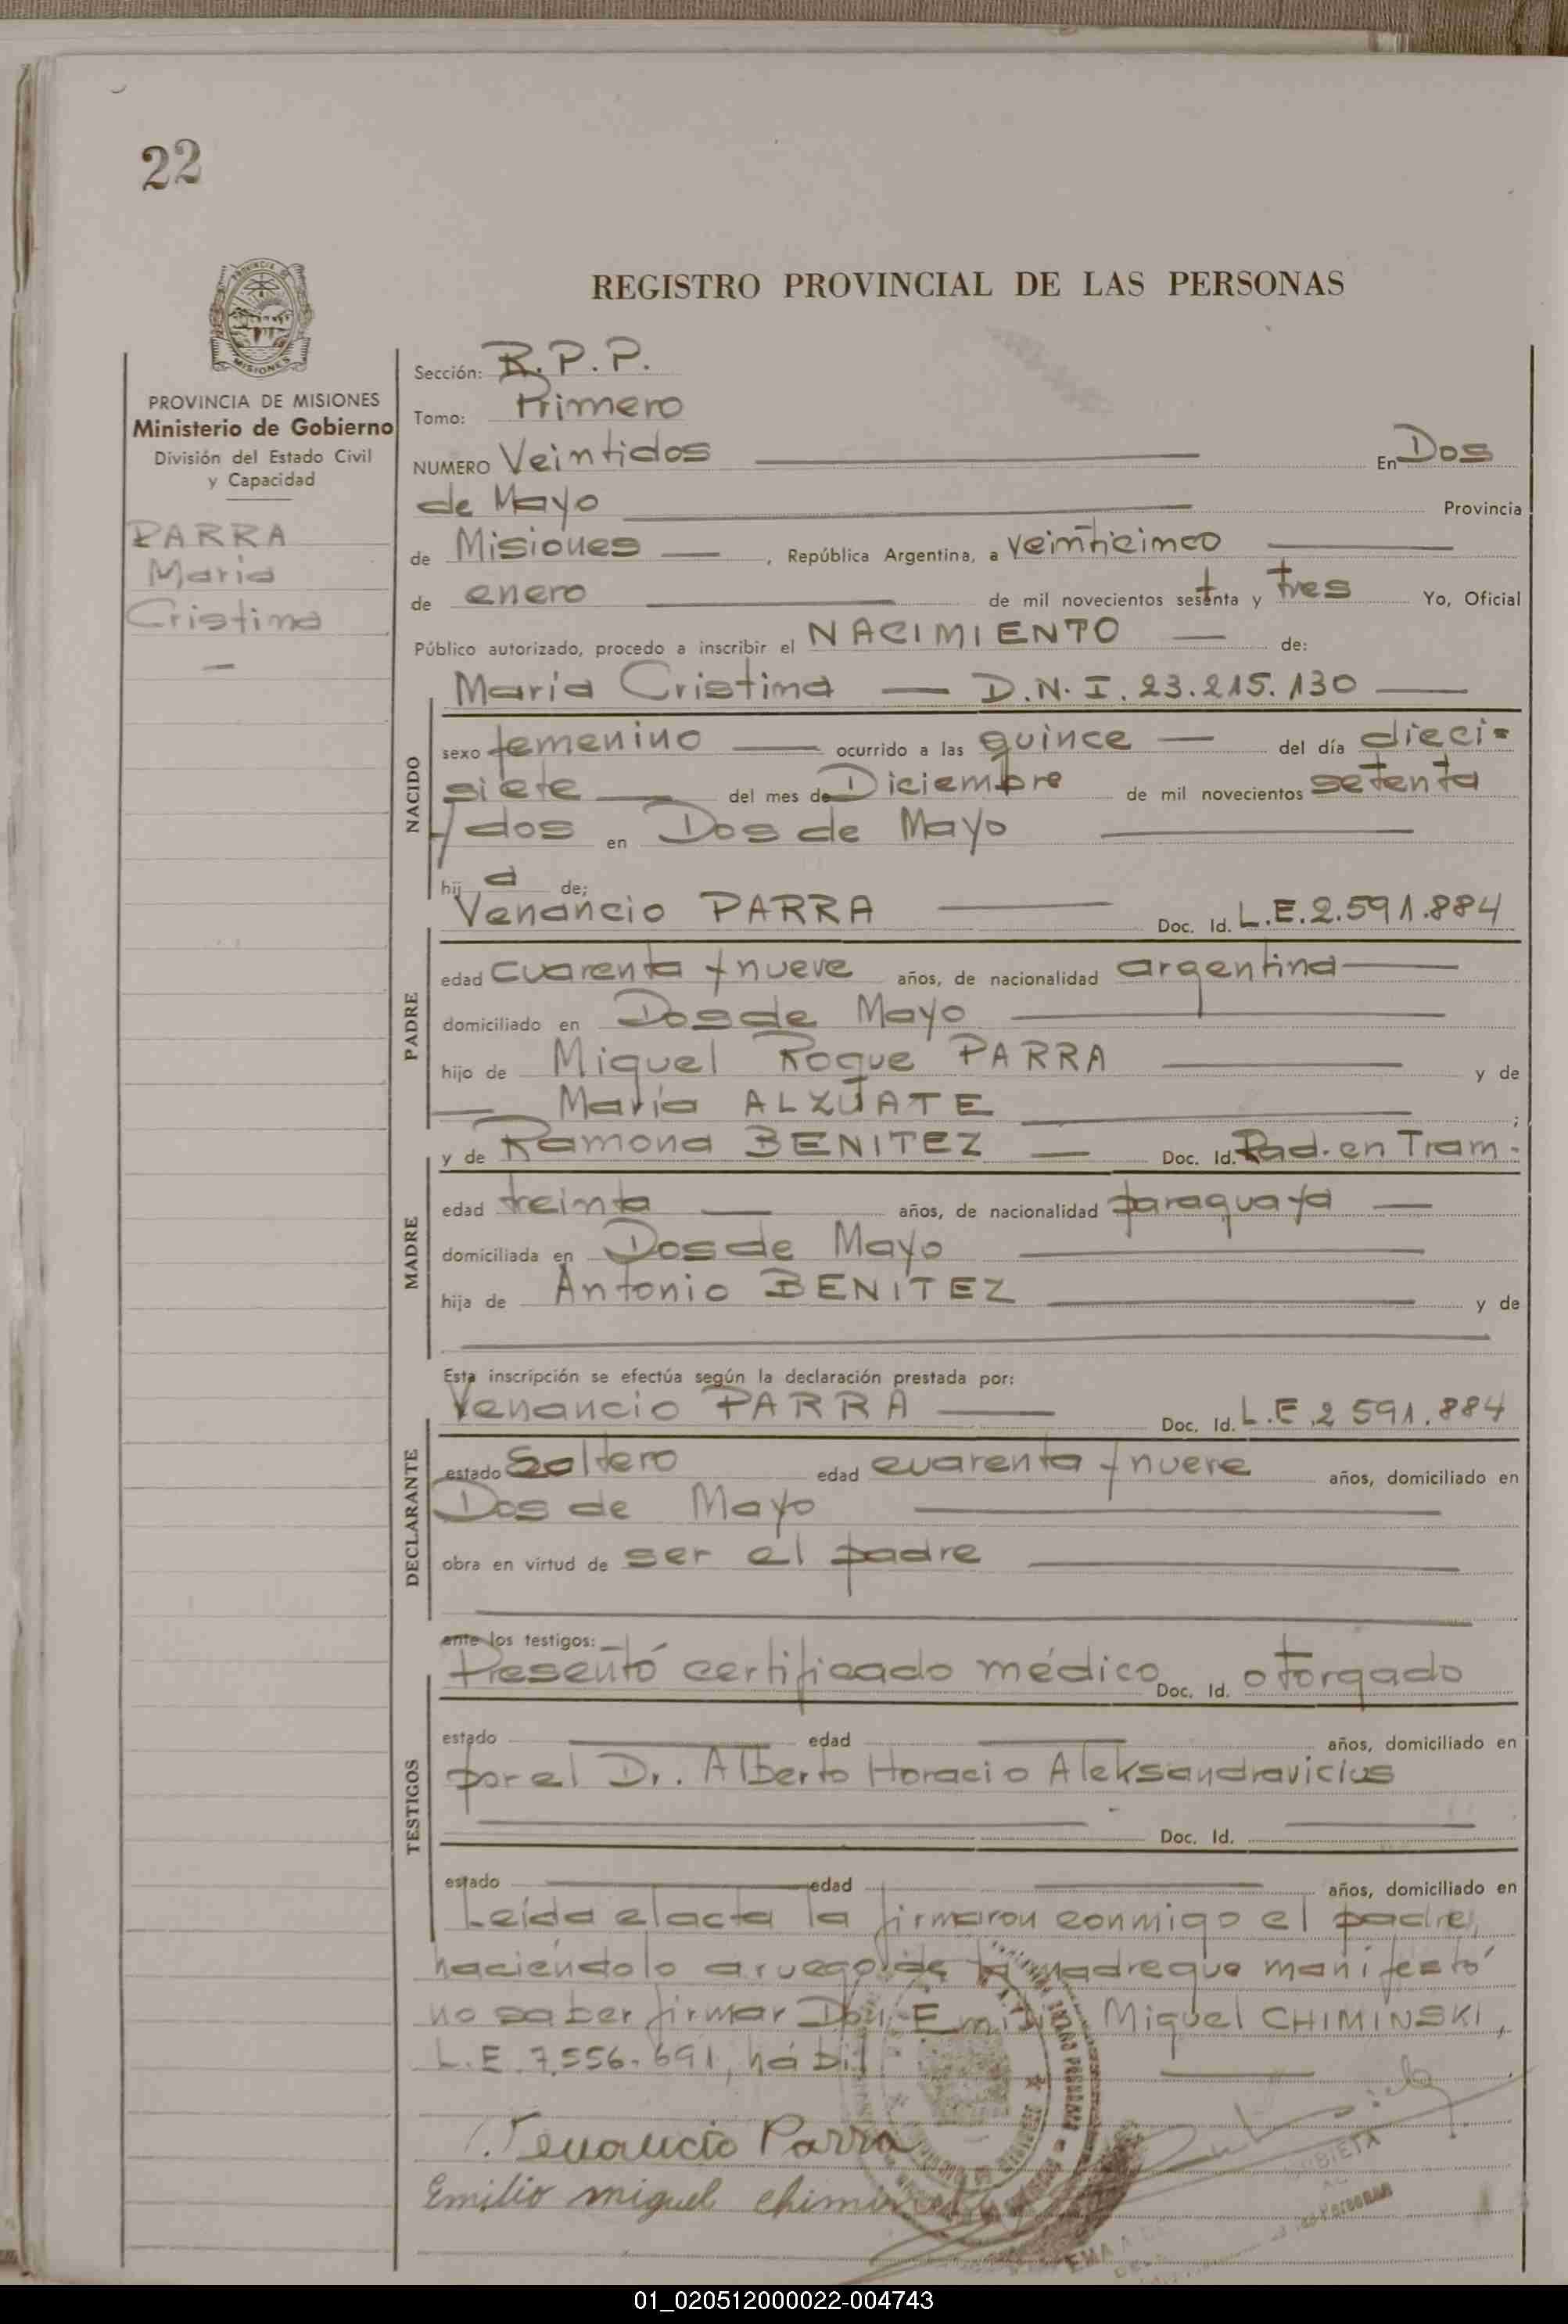 22
PROVINCIA DE
MISIONES
PROVINCIA DE MISIONES
Ministerio de Gobierno
División del Estado Civil
y Capacidad
PARRA
María
Cristina
—
REGISTRO PROVINCIAL DE LAS PERSONAS
Sección: R.P.P.
Tomo: Primero
NUMERO Veintidos — En Dos
de Mayo — Provincia
de Misiones —, República Argentina, a veinticinco —
de enero — de mil novecientos setenta y tres Yo, Oficial
Público autorizado, procedo a inscribir el NACIMIENTO — de:
María Cristina — D.N.I. 23.215.130 —
NACIDO
sexo femenino — ocurrido a las quince — del día dieci=
siete — del mes de Diciembre de mil novecientos setenta
y dos en Dos de Mayo —
hij a de;
Venancio PARRA — Doc. Id. L.E.2.591.884
PADRE
edad cuarenta y nueve años, de nacionalidad argentina —
domiciliado en Dos de Mayo —
hijo de Miguel Roque PARRA — y de
— María ALZUATE — ;
y de Ramona BENITEZ — Doc. Id. Rad. en Tram.
MADRE
edad treinta — años, de nacionalidad paraguaya —
domiciliada en Dos de Mayo —
hija de Antonio BENITEZ — y de
—
Esta inscripción se efectúa según la declaración prestada por:
Venancio PARRA — Doc. Id. L.E.2 591.884
DECLARANTE
estado Soltero edad cuarenta y nueve años, domiciliado en
Dos de Mayo —
obra en virtud de ser el padre —
—
ante los testigos:
Presentó certificado médico Doc. Id. otorgado
TESTIGOS
estado — edad — años, domiciliado en
por el Dr. Alberto Horacio Aleksandravicius
— Doc. Id. —
estado — edad — años, domiciliado en
Leída el acta la firmaron conmigo el padre,
haciéndolo a ruego de la madre que manifestó
no saber firmar Don Emilio Miguel CHIMINSKI,
L.E. 7.556.691, hábil —
Venancio Parra
Emilio miguel chiminski
01_020512000022-004743